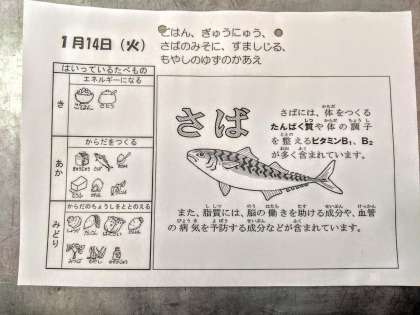 1月14日（火）
ごはん、ぎゅうにゅう、
さばのみそに、すましじる、
もやしのゆずのかあえ
はいっているたべもの
エネルギーになる
き
からだをつくる
あか
からだのちょうしをととのえる
みどり
さば
さばには、体をつくる
たんぱく質や体の調子
を整えるビタミンB₁、B₂
が多く含まれています。
また、脂質には、脳の働きを助ける成分や、血管
の病気を予防する成分などが含まれています。